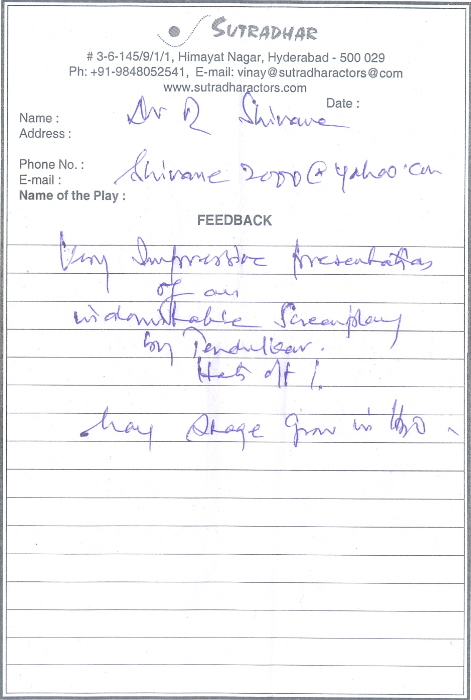 SUTRADHAR
# 3-6-145/9/1/1, Himayat Nagar, Hyderabad - 500 029
Ph: +91-9848052541, E-mail: vinay@sutradharactors@com
www.sutradharactors.com
Date :
Name : Dr R
Address :
Phone No. :
E-mail : 2000@yahoo.com
Name of the Play :
FEEDBACK
Very Impressive presentation
of an
indomitable Screenplay
by Tendulkar.
Hats off !
May Stage grow in